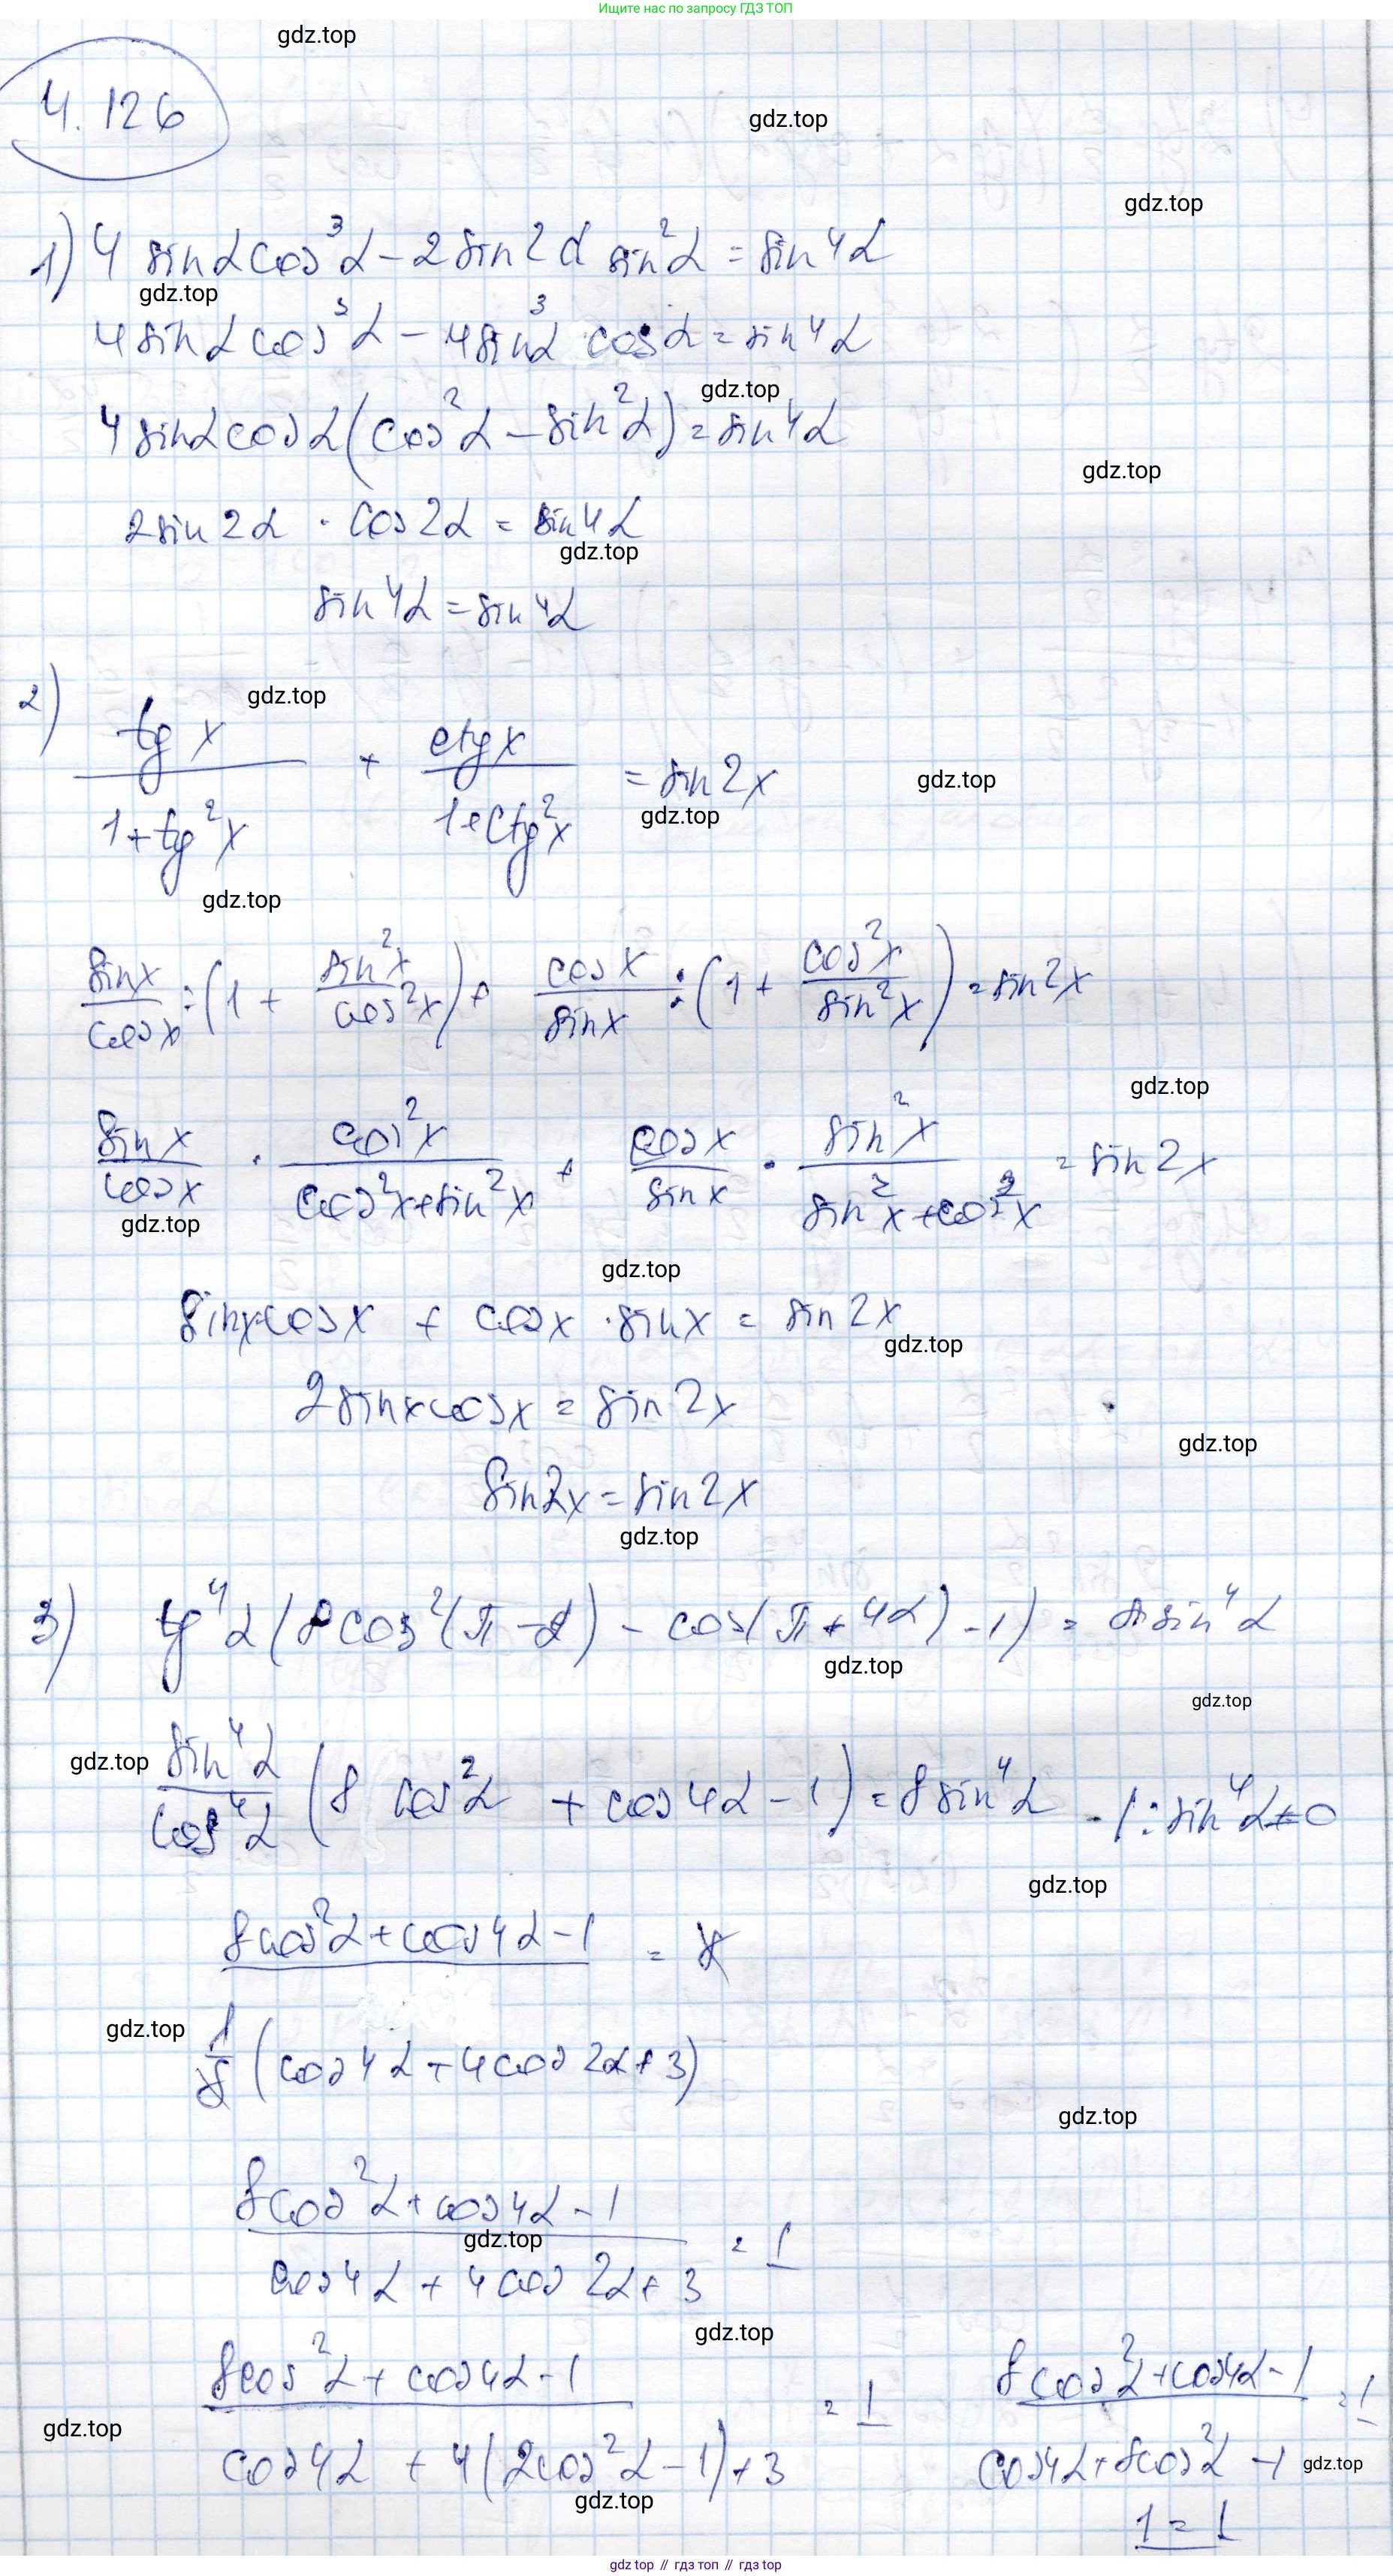 Ищите нас по запросу ГДЗ ТОП
gdz.top
4.126
gdz.top
gdz.top
1) 4 sinα cos³α − 2 sin2α sin²α = sin4α
gdz.top
4 sinα cos³α − 4 sin³α cosα = sin4α
gdz.top
4 sinα cosα (cos²α − sin²α) = sin4α
gdz.top
2 sin2α · cos2α = sin4α
gdz.top
sin4α = sin4α
gdz.top
2) tg x / (1 + tg²x) + ctg x / (1 + ctg²x) = sin2x
gdz.top
gdz.top
gdz.top
sinx/cosx : (1 + sin²x/cos²x) + cosx/sinx : (1 + cos²x/sin²x) = sin2x
gdz.top
sinx/cosx · cos²x/(cos²x + sin²x) + cosx/sinx · sin²x/(sin²x + cos²x) = sin2x
gdz.top
gdz.top
sinx·cosx + cosx · sinx = sin2x
gdz.top
2 sinx cosx = sin2x
gdz.top
sin2x = sin2x
gdz.top
3) tg⁴α (8 cos²(π − α) − cos(π + 4α) − 1) = 8 sin⁴α
gdz.top
gdz.top
gdz.top
sin⁴α/cos⁴α (8 cos²α + cos4α − 1) = 8 sin⁴α - | : sin⁴α ≠ 0
gdz.top
(8cos²α + cos4α − 1) / = 8
gdz.top
1/8 (cos4α + 4cos2α + 3)
gdz.top
(8cos²α + cos4α − 1) / (cos4α + 4cos2α + 3) = 1
gdz.top
gdz.top
(8cos²α + cos4α − 1) / (cos4α + 4(2cos²α − 1) + 3) = 1
(8cos²α + cos4α − 1) / (cos4α + 8cos²α − 1) = 1
gdz.top
gdz.top
gdz.top
1 = 1
gdz top // гдз топ // гдз top